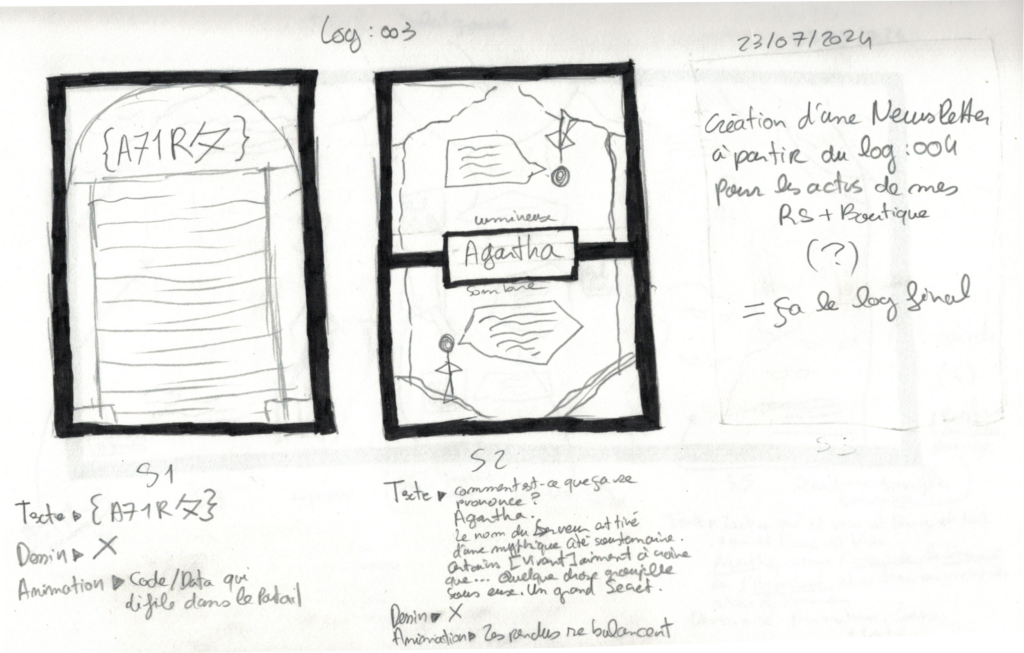 Log : 003
23/07/2024
{A71R/Z}
lumineuse
Agartha
Sombre
Création d'une Newsletter
à partir du log :004
pour les actus de mes
RS + Boutique
(?)
= ça le log final
S1
Texte ▶ {A71R/Z}
Dessin ▶ X
Animation ▶ Code/Data qui
défile dans le Portail
S2
Texte ▶ comment est-ce que ça se
prononce ?
Agartha.
Le nom du Serveur attiré
d'une mythique Cité souterraine.
Certains [Vivant] aiment à croire
que... Quelque chose grouille
sous eux. Un grand Secret.
Dessin ▶ X
Animation ▶ Les pendus se balancent